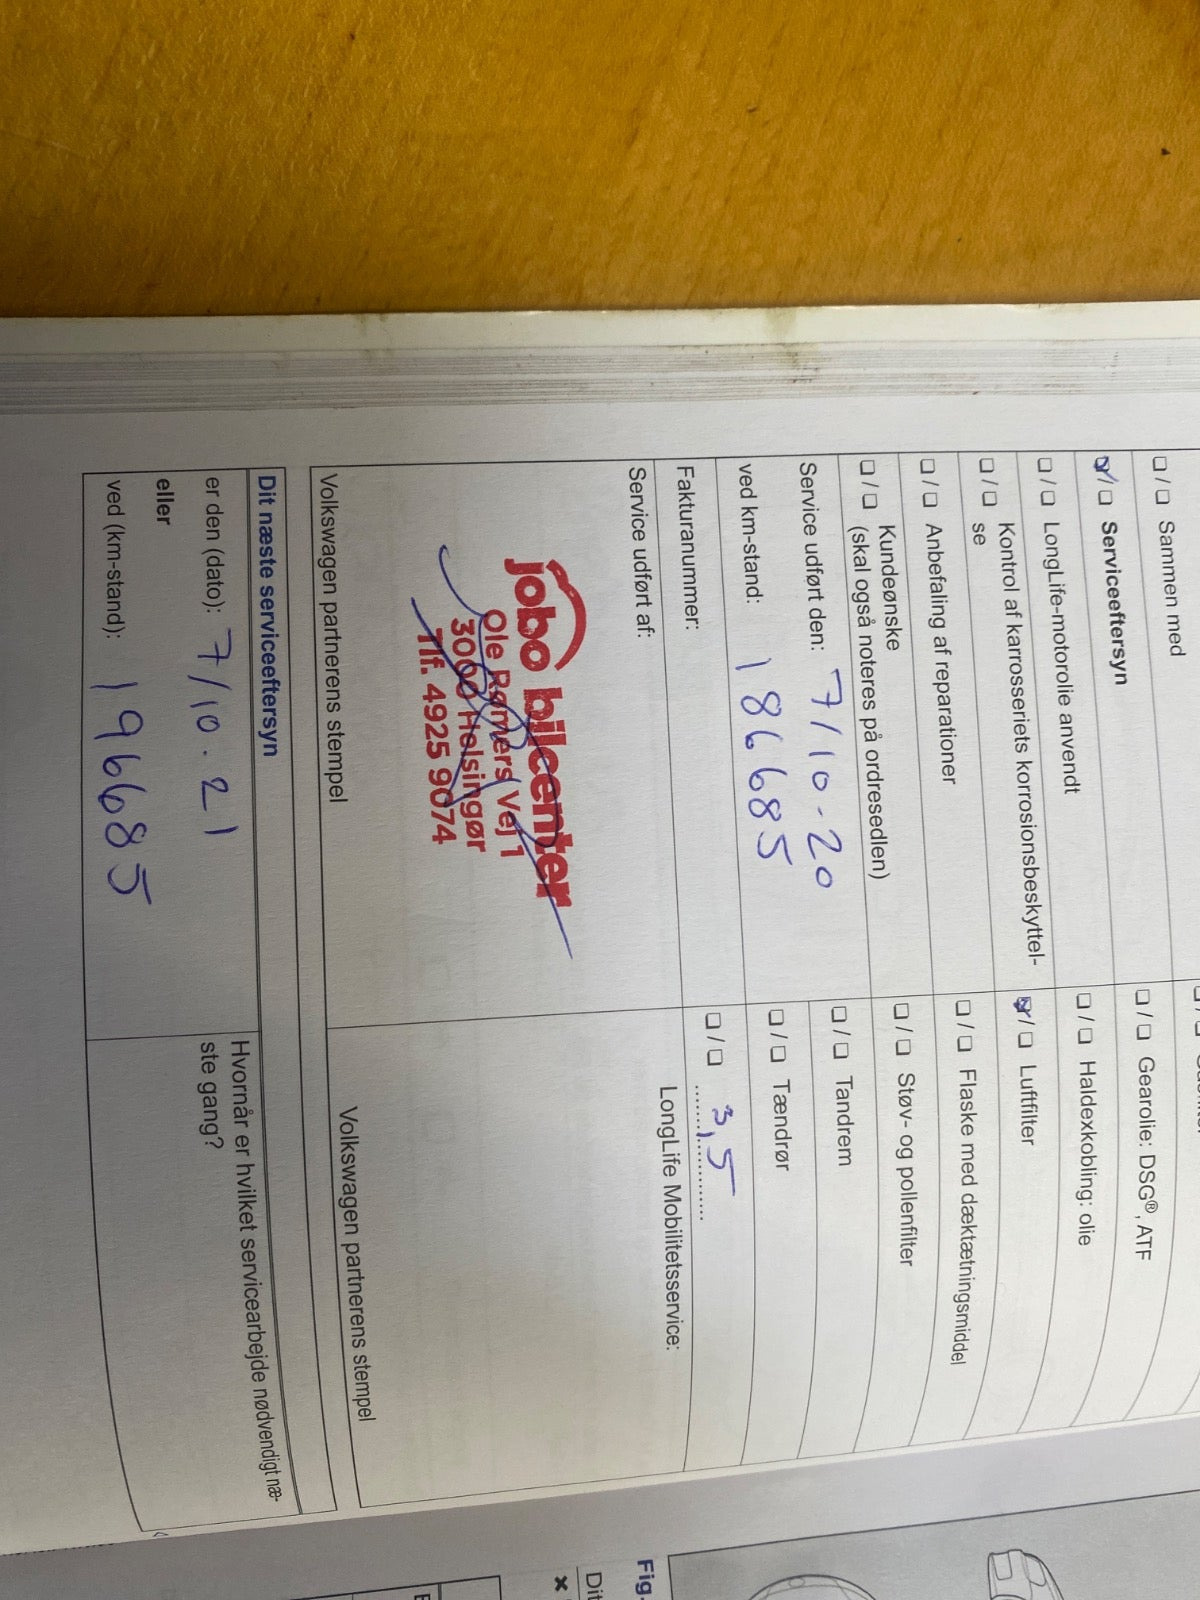 ☐ / ☐ Sammen med
☑ / ☐ Serviceeftersyn
☐ / ☐ LongLife-motorolie anvendt
☐ / ☐ Kontrol af karrosseriets korrosionsbeskyttel-
se
☐ / ☐ Anbefaling af reparationer
☐ / ☐ Kundeønske
(skal også noteres på ordresedlen)
Service udført den: 7/10-20
ved km-stand: 186685
Fakturanummer:
Service udført af:
jobo bilcenter
Ole Rømers Vej 1
3000 Helsingør
Tlf. 4925 9074
Volkswagen partnerens stempel
☐ / ☐ Gearolie: DSG®, ATF
☐ / ☐ Haldexkobling: olie
☑ / ☐ Luftfilter
☐ / ☐ Flaske med dæktætningsmiddel
☐ / ☐ Støv- og pollenfilter
☐ / ☐ Tandrem
☐ / ☐ Tændrør
☐ / ☐ 3,5
LongLife Mobilitetsservice:
Volkswagen partnerens stempel
Dit næste serviceeftersyn
er den (dato): 7/10.21
eller
ved (km-stand): 196685
Hvornår er hvilket servicearbejde nødvendigt næ-
ste gang?
Fig.
Dit